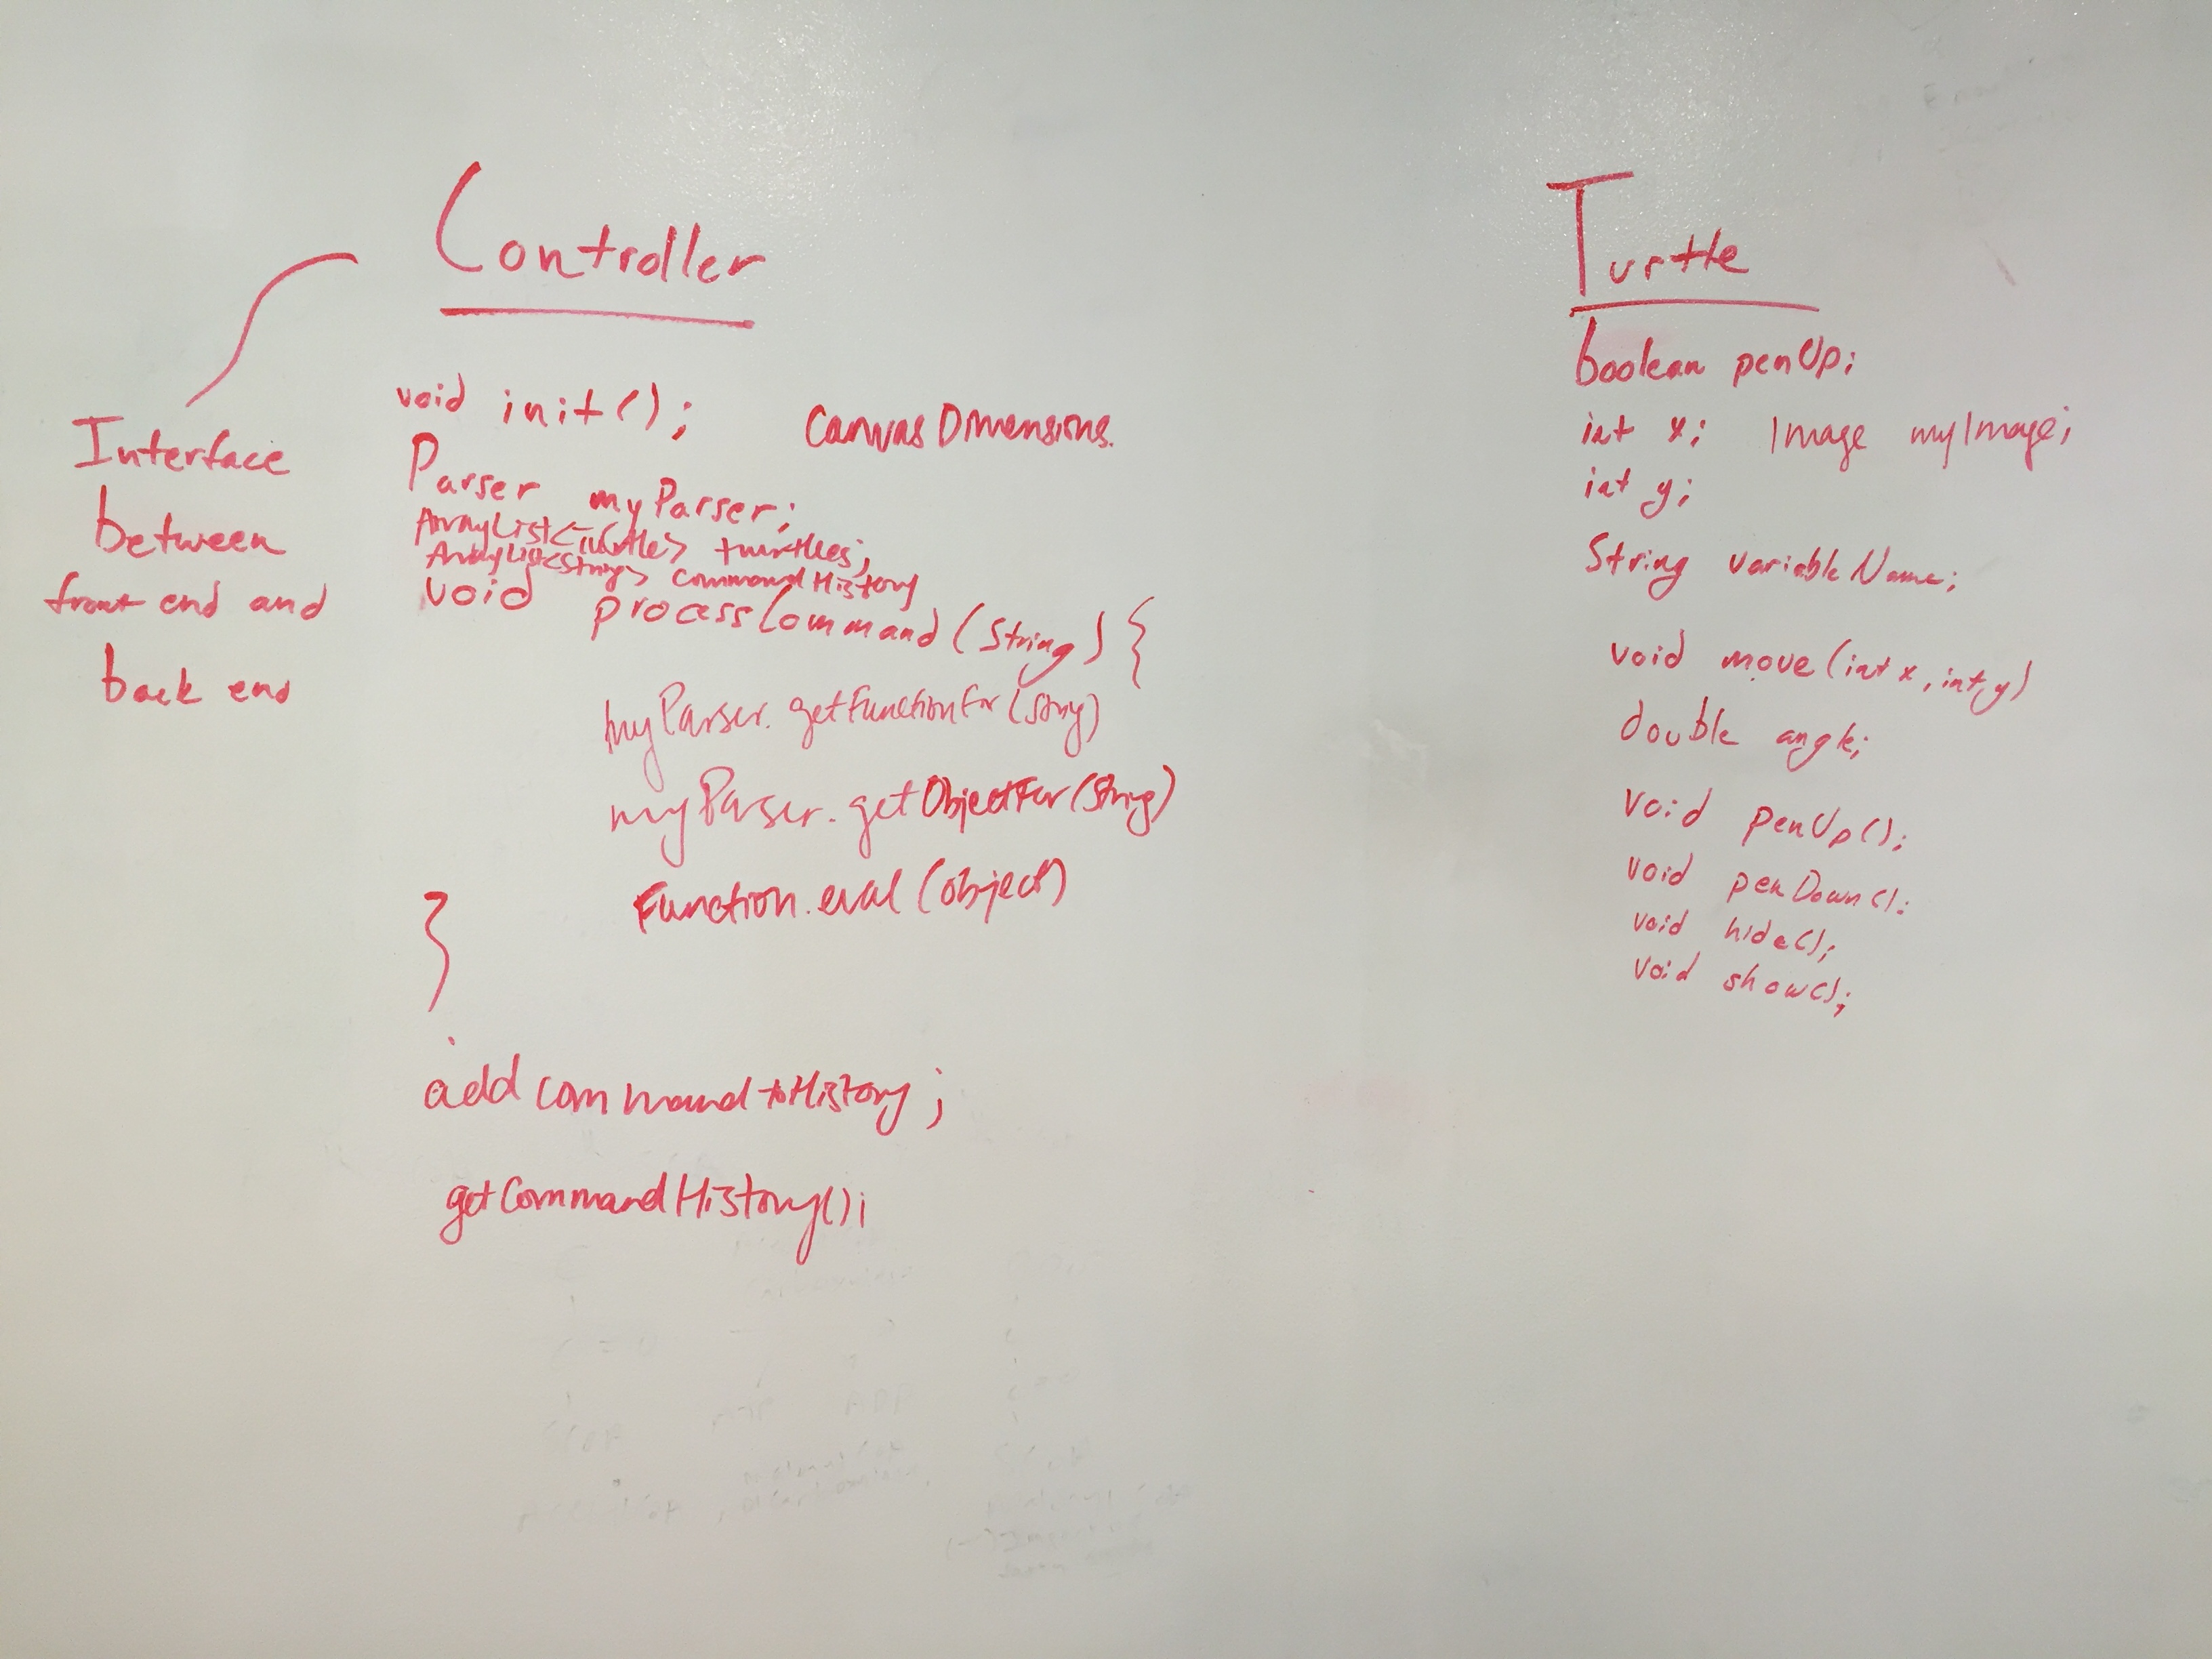 Controller
Interface
between
front end and
back end
void init();
Canvas Dimensions.
Parser myParser;
ArrayList<Turtle> turtles;
ArrayList<String> commandHistory
void processCommand(String) {
myParser.getFunctionFor(String)
myParser.getObjectFor(String)
Function.eval(object)
}
addcommandtoHistory;
getCommandHistory();
Turtle
boolean penUp;
int x; Image myImage;
int y;
String variableName;
void move(int x, int y)
double angle;
void penUp();
void penDown();
void hide();
void show();